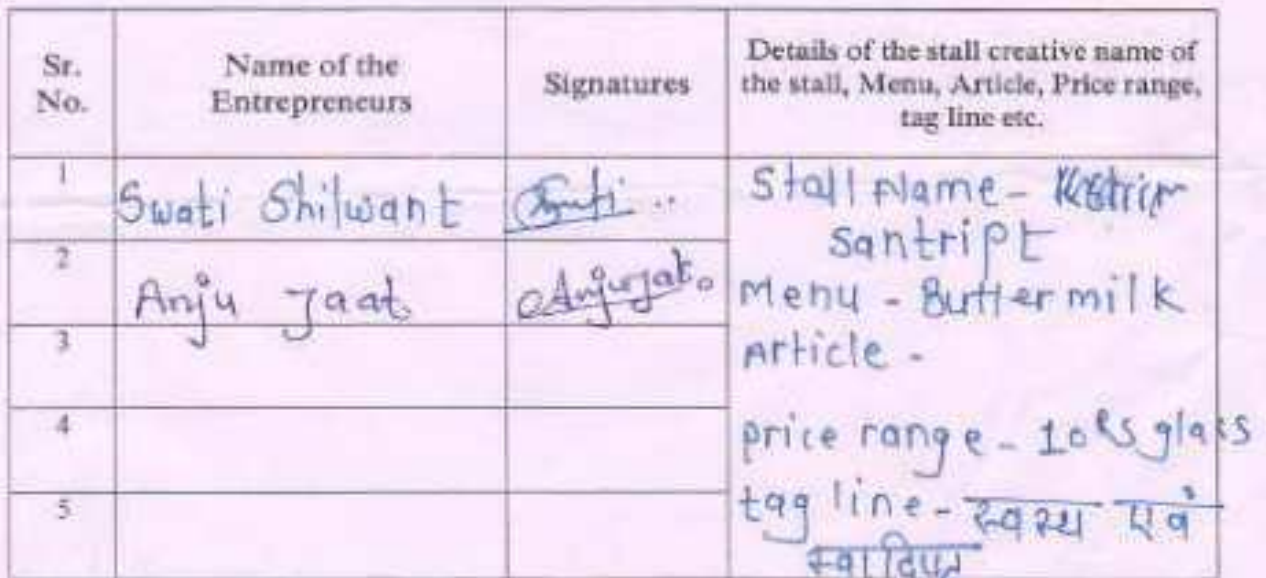 Sr. No.
Name of the Entrepreneurs
Signatures
Details of the stall creative name of
the stall, Menu, Article, Price range,
tag line etc.
1
Swati Shilwant
Stall Name -
santript
2
Anju Jaat
Anjujat.
Menu - Buttermilk
3
Article -
4
price range - 10 Rs glass
5
tag line - स्वस्थ एवं
स्वादिष्ट